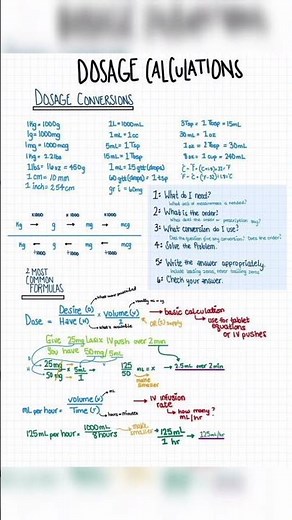 DOSAGE CALCULATIONS
DOSAGE CONVERSIONS
1Kg = 1000g
1g = 1000mg
1mg = 1000mcg
1Kg = 2.2lbs
1lbs = 16oz = 450g
1cm = 10mm
1 inch = 2.54cm
1L = 1000mL
1mL = 1cc
5mL = 1Tsp
15mL = 1Tbsp
1mL = 15gtt (drops)
60gtt (drops) = 1tsp
gr i = 60mg
3Tsp = 1Tbsp = 15mL
30mL = 1oz
1oz = 2Tbsp = 30mL
8oz = 1cup = 240mL
x1000 x1000 x1000
Kg → g → mg → mcg
Kg ← g ← mg ← mcg
÷1000 ÷1000 ÷1000
1: What do I need?
What unit of measurement is needed?
2: What is the order?
What does the order or prescription say?
3: What conversion do I use?
Does the question give any conversion? Does the order?
4: Solve the Problem.
5: Write the answer appropriately.
Include leading zeros, never trailing zeros
6: Check your answer.
2 MOST
COMMON
FORMULAS
Dose = Desire (D) / Have (H) × Volume (V) / 1
what's available
→ basic calculation
→ use for tablet
equations
or IV pushes
Give 25mg Lasix IV push over 2min
You have 50mg/5mL
25mg / 50mg × 5mL / 1 → 125 / 50 = x → 2.5mL over 2min
make
smaller
mL per hour = volume (v) / Time (T)
mL
hours
→ IV infusion
rate
→ how many?
mL/hr
125mL per hour = 1000mL / 8hours
make
smaller
125mL / 1hr → 125mL/hr